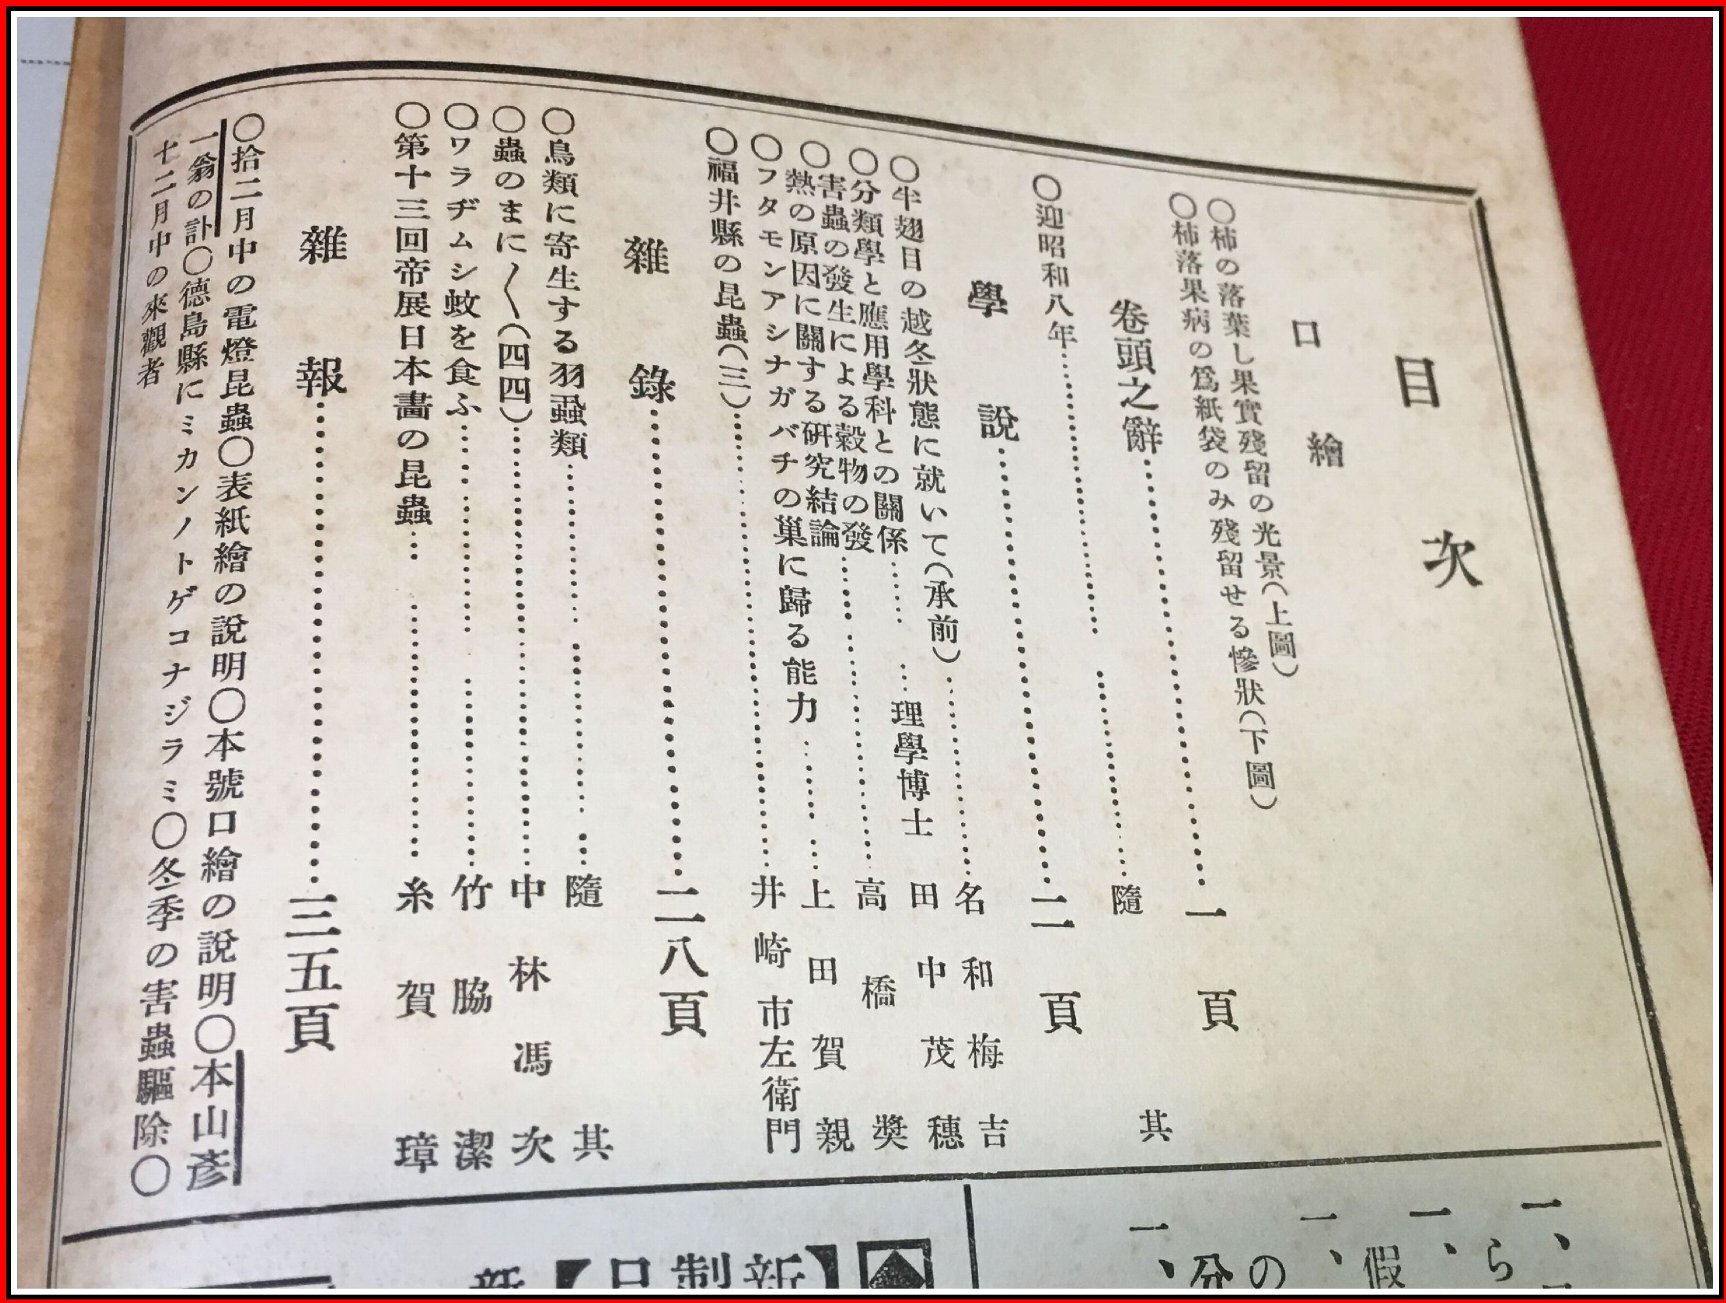 目次
口繪
〇柿の落葉し果實殘留の光景(上圖)
〇柿落果病の爲紙袋のみ殘留せる慘狀(下圖)
卷頭之辭……一頁
〇迎昭和八年……隨其
學說……二頁
〇半翅目の越冬狀態に就いて(承前)……名和梅吉
〇分類學と應用學科との關係……理學博士 田中茂穗
〇害蟲の發生による穀物の發
熱の原因に關する硏究結論……高橋奬
〇フタモンアシナガバチの巢に歸る能力……上田賀親
〇福井縣の昆蟲(三)……井崎市左衛門
雜錄……二八頁
〇鳥類に寄生する羽蝨類……隨其
〇蟲のまに〱(四四)……中林馮次
〇ワラヂムシ蚊を食ふ……竹脇潔
〇第十三回帝展日本畵の昆蟲……糸賀璋
雜報……三五頁
〇拾二月中の電燈昆蟲〇表紙繪の說明〇本號口繪の說明〇本山彥
一翁の訃〇德島縣にミカンノトゲコナジラミ〇冬季の害蟲驅除〇
十二月中の來觀者
一、ら
一、假
一、の
一、分
新制日【